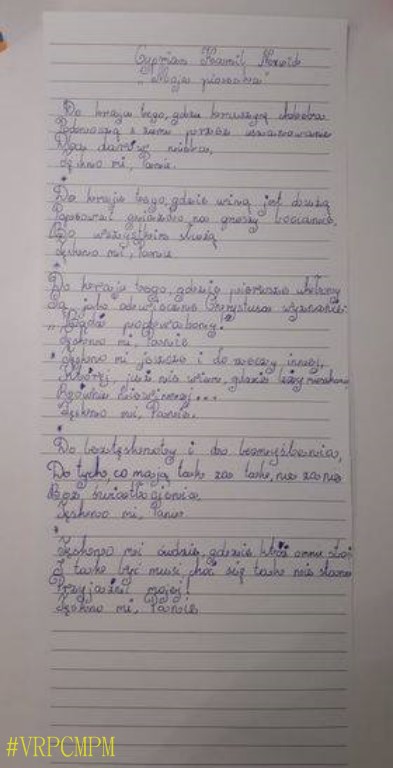 Cyprian Kamil Norwid
"Moja piosnka"
Do kraju tego, gdzie kruszynę chleba
Podnoszą z ziemi przez uszanowanie
Dla darów nieba,
Tęskno mi, Panie.
*
Do kraju tego, gdzie winą jest dużą
Popsować gniazdo na gruszy bocianie,
Bo wszystkim służą
Tęskno mi, Panie
*
Do kraju tego, gdzie pierwsze ukłony
Są jako odwieczne Chrystusa wyznanie:
"Bądź pochwalony!"
Tęskno mi, Panie
* Tęskno mi jeszcze i do rzeczy innej,
Której już nie wiem, gdzie leży
Równie niewinnej...
Tęskno mi, Panie.
*
Do beztęsknoty i do bezmyślenia,
Do tych, co mają tak za tak, nie za nie
Bez światłocienia
Tęskno mi, Panie
*
Tęskno mi owdzie, gdzie któż o mnie stoi
I tak być musi choć się tak nie stanie
Przyjaźni mojej!
Tęskno mi, Panie
#VRPCMPM